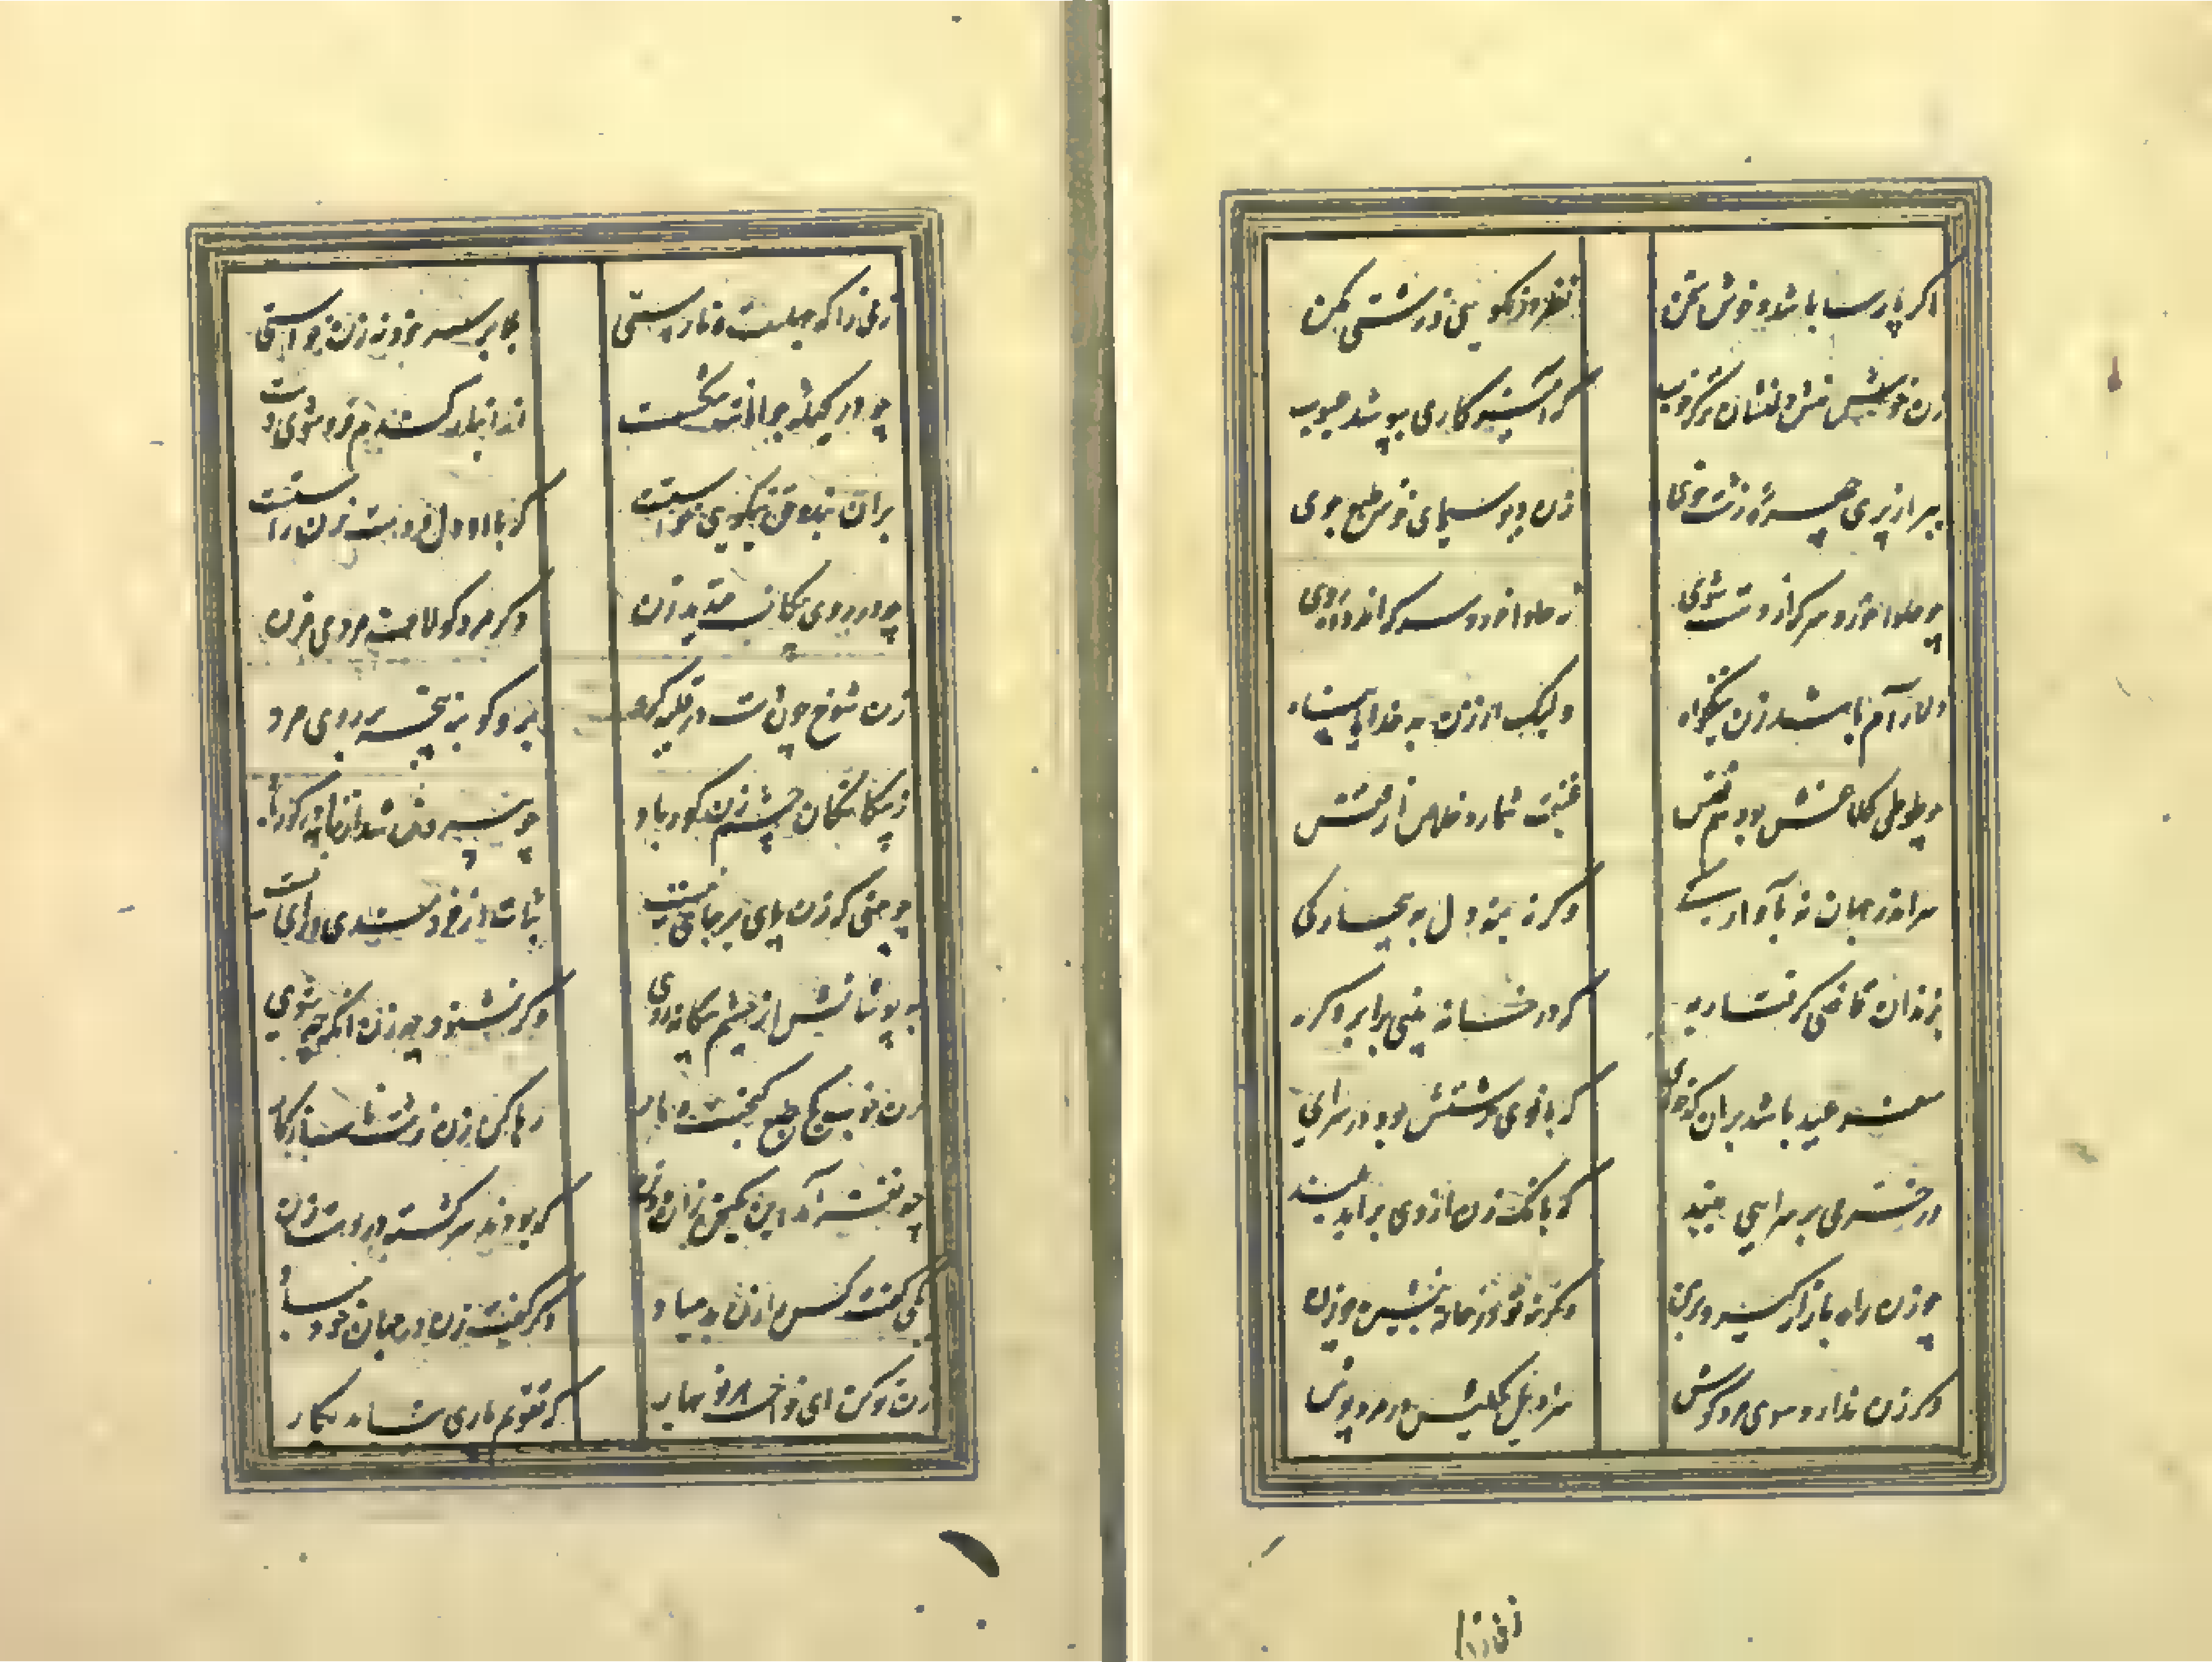 اکر پارسا باشد و خوش سخن نظر در نکویی و زشتی مکن
زن خوش منش دلنشان تر که خوب که آمیزکاری بپوشد عیوب
ببر از پری چهره زشت خوی زن دیو سیمای خوش طبع جوی
چو حلوا خورد سرکه از دست شوی نه حلوا خورد سرکه اندوده روی
دلارام باشد زن نیکخواه ولیک از زن بد خدایا پناه
چو طوطی کلاغش بود هم نفس غنیمت شمارد خلاص از قفس
سر اندر جهان نه بآوارکی وکرنه بنه دل به بیچارکی
بزندان قاضی کرفتار به که در خانه بینی بر ابرو کره
سفر عید باشد بران کدخدای که بانوی زشتش بود در سرای
در خرمی بر سرایی ببند که بانک زن از وی براید بلند
چو زن راه بازار کیرد بزن وکرنه تو در خانه بنشین چو زن
وکر زن ندارد سوی مرد کوش سراویل کحلیش در مرد پوش
زنی را که جهلست و ناراستی بلا بر سر خود نه زن خواستی
چو در کیله جو امانت شکست از انبار کندم فرو شوی دست
بران بنده حق نیکویی خواستست که با او دل و دست زن راستست
چو در روی بیکانه خندید زن دکر مرد کو لاف مردی مزن
زن شوخ چون دست در قلیه کرد برو کو بنه پنجه بر روی مرد
ز بیکانکان چشم زن کور باد چو بیرون شد از خانه در کور باد
چو بینی که زن پای بر جای نیست ثبات از خردمندی و رای نیست
بپوشانش از چشم بیکانه روی وکر نشنود چه زن انکه چه شوی
زن خوب خوش طبع کنجست و بار رها کن زن زشت ناسازکار
چه نغز آمد این یک سخن زان دو تن که بودند سرکشته از دست زن
یکی کفت کس را زن بد مباد دکر کفت زن در جهان خود مباد
زن نو کن ای خواجه هر نو بهار که تقویم پاری نیاید بکار